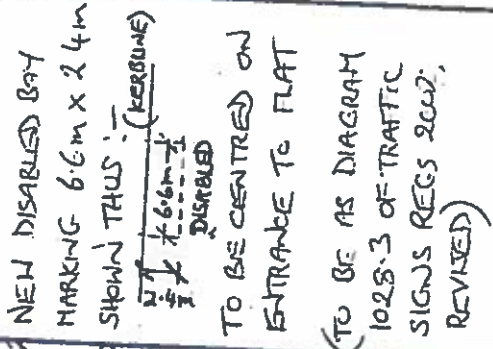 NEW DISABLED BAY
MARKING 6.6m x 2.4m
SHOWN THUS :-
(KERBLINE)
2.4
6.6m
DISABLED
TO BE CENTRED ON
ENTRANCE TO FLAT
(TO BE AS DIAGRAM
1028.3 OF TRAFFIC
SIGNS REGS 2002.
REVISED)